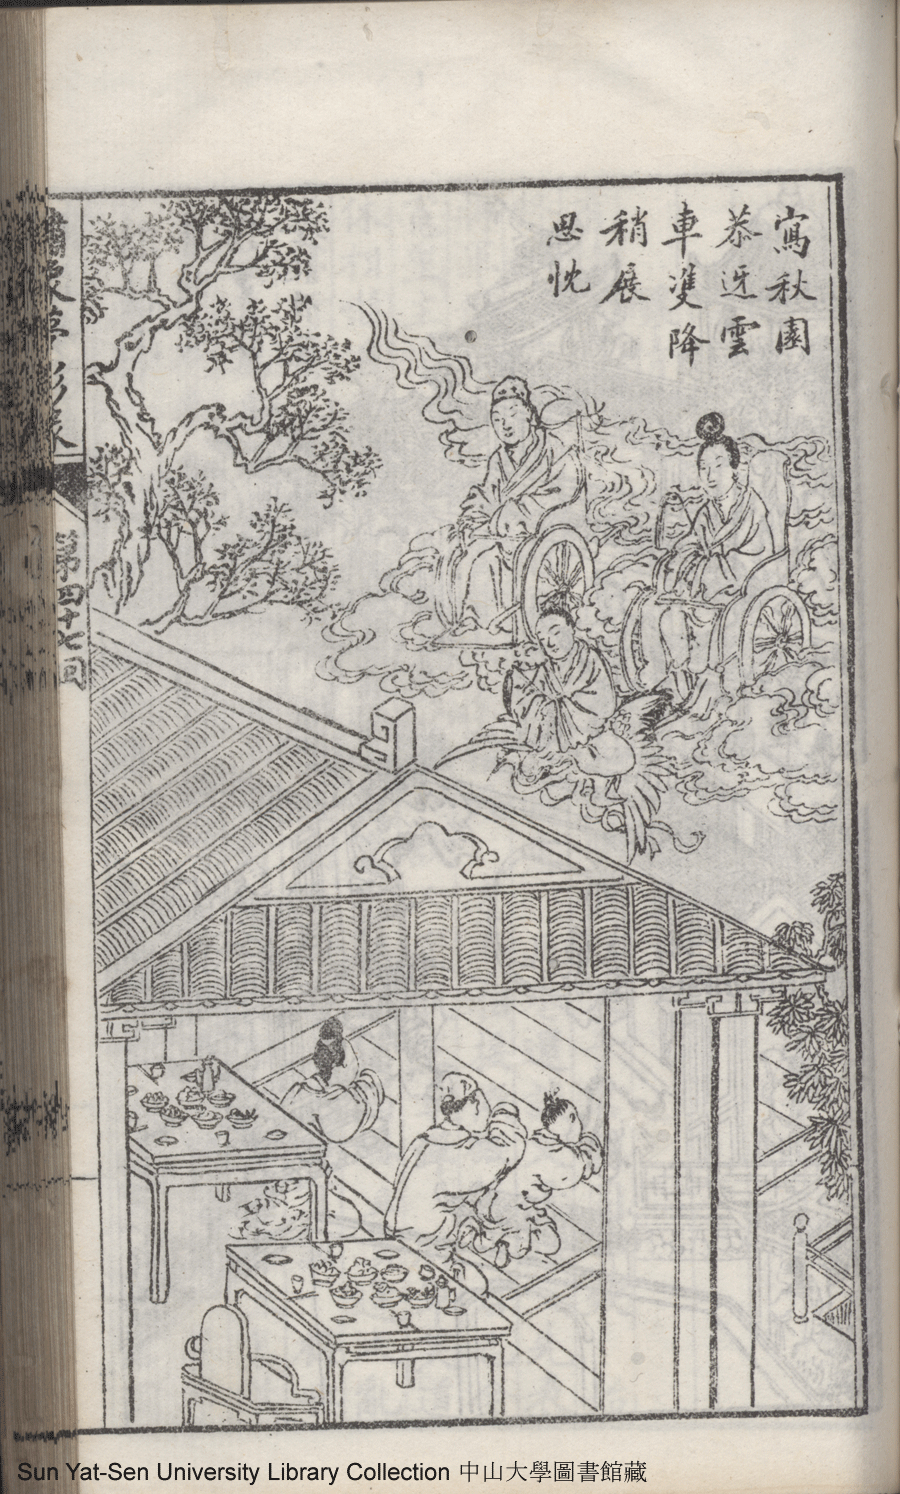 寫秋園
恭迓雲
車雙降
稍展
思忱
繡像夢影緣
第四十七回
Sun Yat-Sen University Library Collection 中山大學圖書館藏